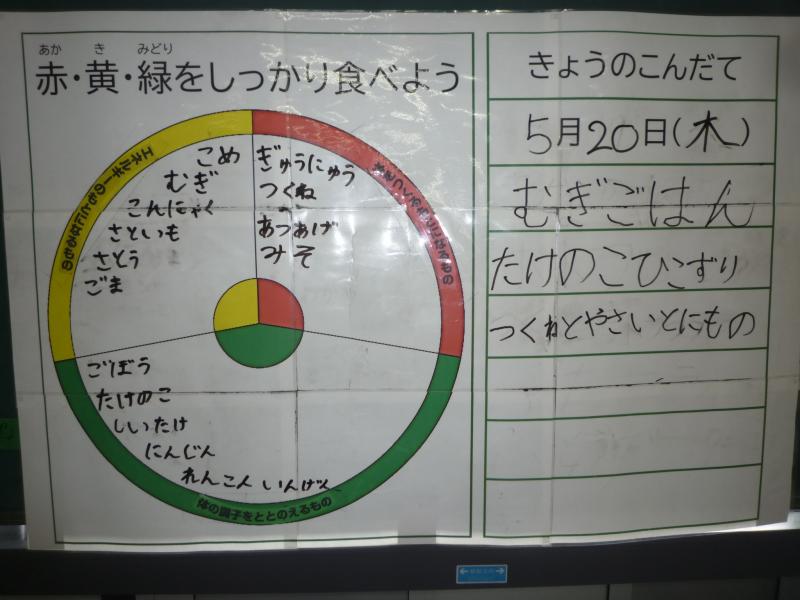 あか き みどり
赤・黄・緑をしっかり食べよう
エネルギーのもとになるもの
こめ
むぎ
こんにゃく
さといも
さとう
ごま
体をつくるもとになるもの
ぎゅうにゅう
つくね
あつあげ
みそ
ごぼう
たけのこ
しいたけ
にんじん
れんこん いんげん
体の調子をととのえるもの
きょうのこんだて
5月20日(木)
むぎごはん
たけのこひこずり
つくねとやさいとにもの